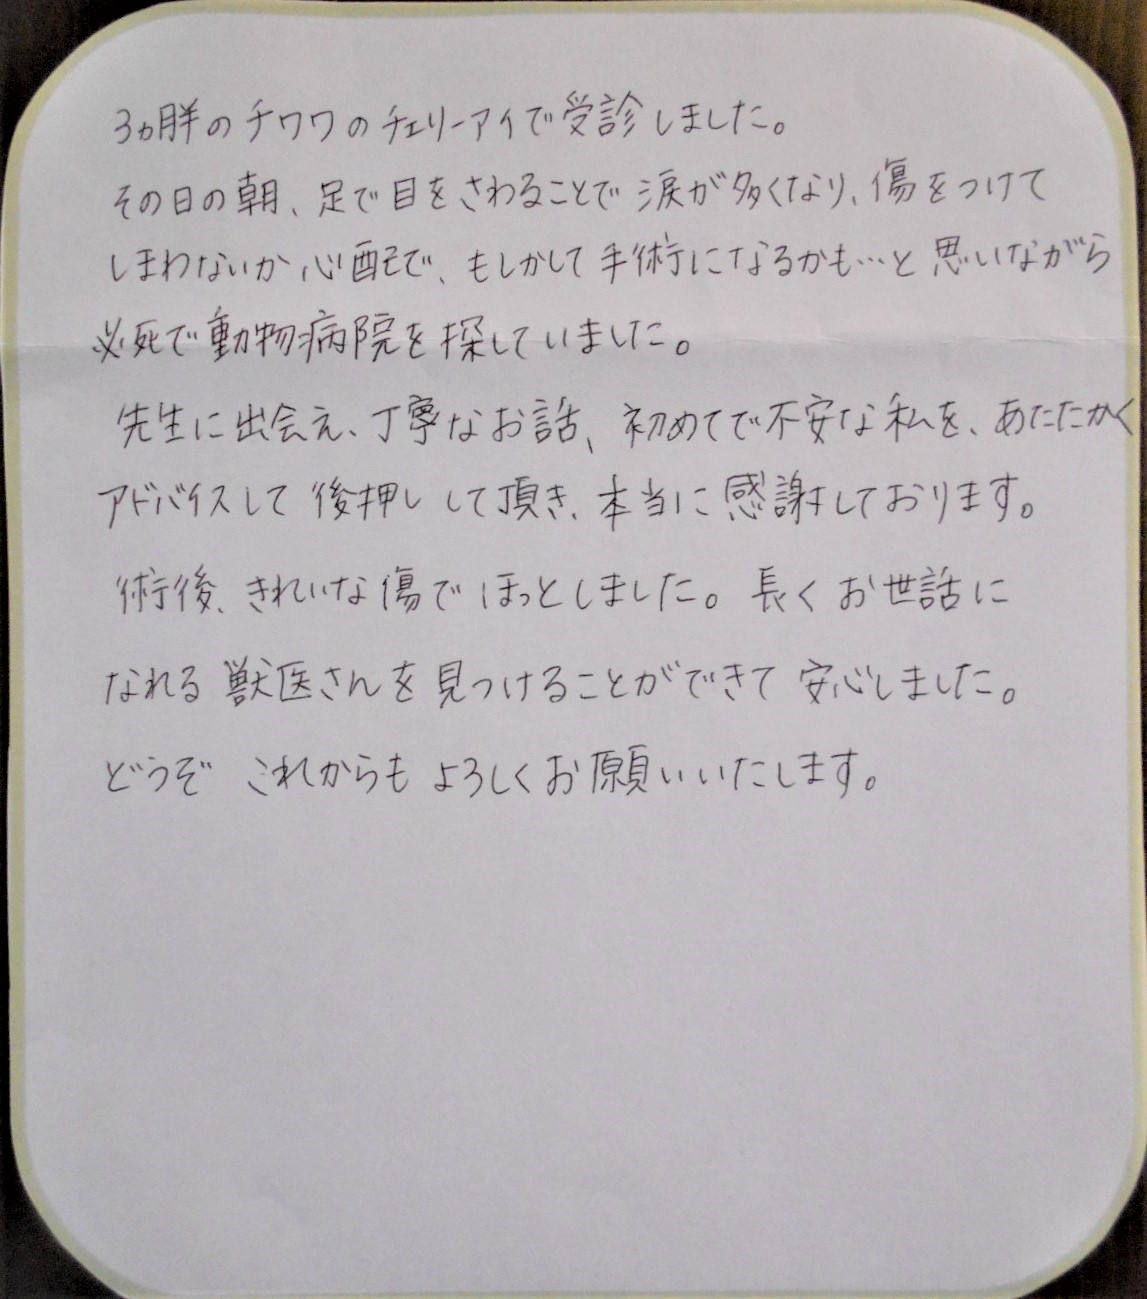 3ヵ月半のチワワのチェリーアイで受診しました。
その日の朝、足で目をさわることで涙が多くなり、傷をつけて
しまわないか心配で、もしかして手術になるかも…と思いながら
必死で動物病院を探していました。
先生に出会え、丁寧なお話、初めてで不安な私を、あたたかく
アドバイスして後押しして頂き、本当に感謝しております。
術後、きれいな傷でほっとしました。長くお世話に
なれる獣医さんを見つけることができて安心しました。
どうぞこれからもよろしくお願いいたします。